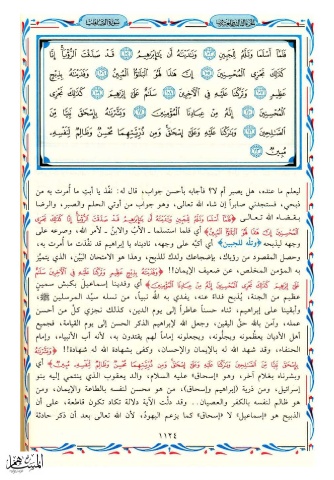 الجزء الثالث والعشرون
سورة الصافات
فَلَمَّا أَسْلَمَا وَتَلَّهُ لِلْجَبِينِ ﴿١٠٣﴾ وَنَادَيْنَاهُ أَنْ يَا إِبْرَاهِيمُ ﴿١٠٤﴾ قَدْ صَدَّقْتَ الرُّؤْيَا إِنَّا
كَذَلِكَ نَجْزِي الْمُحْسِنِينَ ﴿١٠٥﴾ إِنَّ هَذَا لَهُوَ الْبَلَاءُ الْمُبِينُ ﴿١٠٦﴾ وَفَدَيْنَاهُ بِذِبْحٍ
عَظِيمٍ ﴿١٠٧﴾ وَتَرَكْنَا عَلَيْهِ فِي الْآخِرِينَ ﴿١٠٨﴾ سَلَامٌ عَلَى إِبْرَاهِيمَ ﴿١٠٩﴾ كَذَلِكَ نَجْزِي
الْمُحْسِنِينَ ﴿١١٠﴾ إِنَّهُ مِنْ عِبَادِنَا الْمُؤْمِنِينَ ﴿١١١﴾ وَبَشَّرْنَاهُ بِإِسْحَاقَ نَبِيًّا مِنَ
الصَّالِحِينَ ﴿١١٢﴾ وَبَارَكْنَا عَلَيْهِ وَعَلَى إِسْحَاقَ وَمِنْ ذُرِّيَّتِهِمَا مُحْسِنٌ وَظَالِمٌ لِنَفْسِهِ
مُبِينٌ ﴿١١٣﴾
ليعلم ما عنده، هل يصبر أم لا؟ فأجابه بأحسن جواب، قال له: نفّذ يا أبتِ ما أمرت به من
ذبحي، فستجدني صابراً إن شاء الله تعالى، وهو جواب من أوتي الحلم والصبر، والرضا
بقضاء الله تعالى ﴿فَلَمَّا أَسْلَمَا وَتَلَّهُ لِلْجَبِينِ وَنَادَيْنَاهُ أَنْ يَا إِبْرَاهِيمُ قَدْ صَدَّقْتَ الرُّؤْيَا إِنَّا كَذَلِكَ نَجْزِي
الْمُحْسِنِينَ إِنَّ هَذَا لَهُوَ الْبَلَاءُ الْمُبِينُ﴾ أي فلما استسلما ـ الأبُ والابنُ ـ لأمر الله، وصرعه على
وجهه ليذبحه ﴿وتلّه للجبين﴾ أي أكبّه على وجهه، ناديناه يا إبراهيم قد نفّذت ما أُمرت به،
وحصل المقصود من رؤياك، بإضجاعك ولدك للذبح، وهذا هو الامتحان البيّن، الذي يتميّز
به المؤمن المخلص، عن ضعيف الإيمان!! ﴿وَفَدَيْنَاهُ بِذِبْحٍ عَظِيمٍ وَتَرَكْنَا عَلَيْهِ فِي الْآخِرِينَ سَلَامٌ
عَلَى إِبْرَاهِيمَ كَذَلِكَ نَجْزِي الْمُحْسِنِينَ إِنَّهُ مِنْ عِبَادِنَا الْمُؤْمِنِينَ﴾ أي وفدينا إسماعيل بكبش سمينٍ
عظيم من الجنة، يُذبح فداءً عنه، يفدي به الله نبياً، من نسله سيّد المرسلين ﷺ،
وأبقينا على إبراهيم، ثناءً حسناً عاطراً إلى يوم الدين، كذلك نجزي كلَّ من أحسن
عمله، وآمن بالله حقَّ اليقين، وجعل الله لإبراهيم الذكر الحسن إلى يوم القيامة، فجميع
أهل الأديان يعظّمونه ويجلّونه، ويجعلونه إماماً لهم يقتدون به، لأنه أب الأنبياء، وإمام
الحنفاء، وقد شهد الله له بالإيمان والإحسان، وكفى بشهادة الله له شهادة!! ﴿وَبَشَّرْنَاهُ
بِإِسْحَاقَ نَبِيًّا مِنَ الصَّالِحِينَ وَبَارَكْنَا عَلَيْهِ وَعَلَى إِسْحَاقَ وَمِنْ ذُرِّيَّتِهِمَا مُحْسِنٌ وَظَالِمٌ لِنَفْسِهِ مُبِينٌ﴾ أي
وبشرناه بغلام آخر، وهو «إسحاق» عليه السلام، والد يعقوب الذي ينتمي إليه بنو
إسرائيل، ومن ذرية (إبراهيم وإسحاق)، من هو محسن لنفسه بالطاعة والإيمان، ومن
هو ظالم لنفسه بالكفر والعصيان.. وقد دلّت الآية دلالة تكاد تكون قاطعة، على أن
الذبيح هو «إسماعيل» لا «إسحاق» كما يزعم اليهود، لأن الله تعالى بعد أن ذكر حادثة
١١٢٤